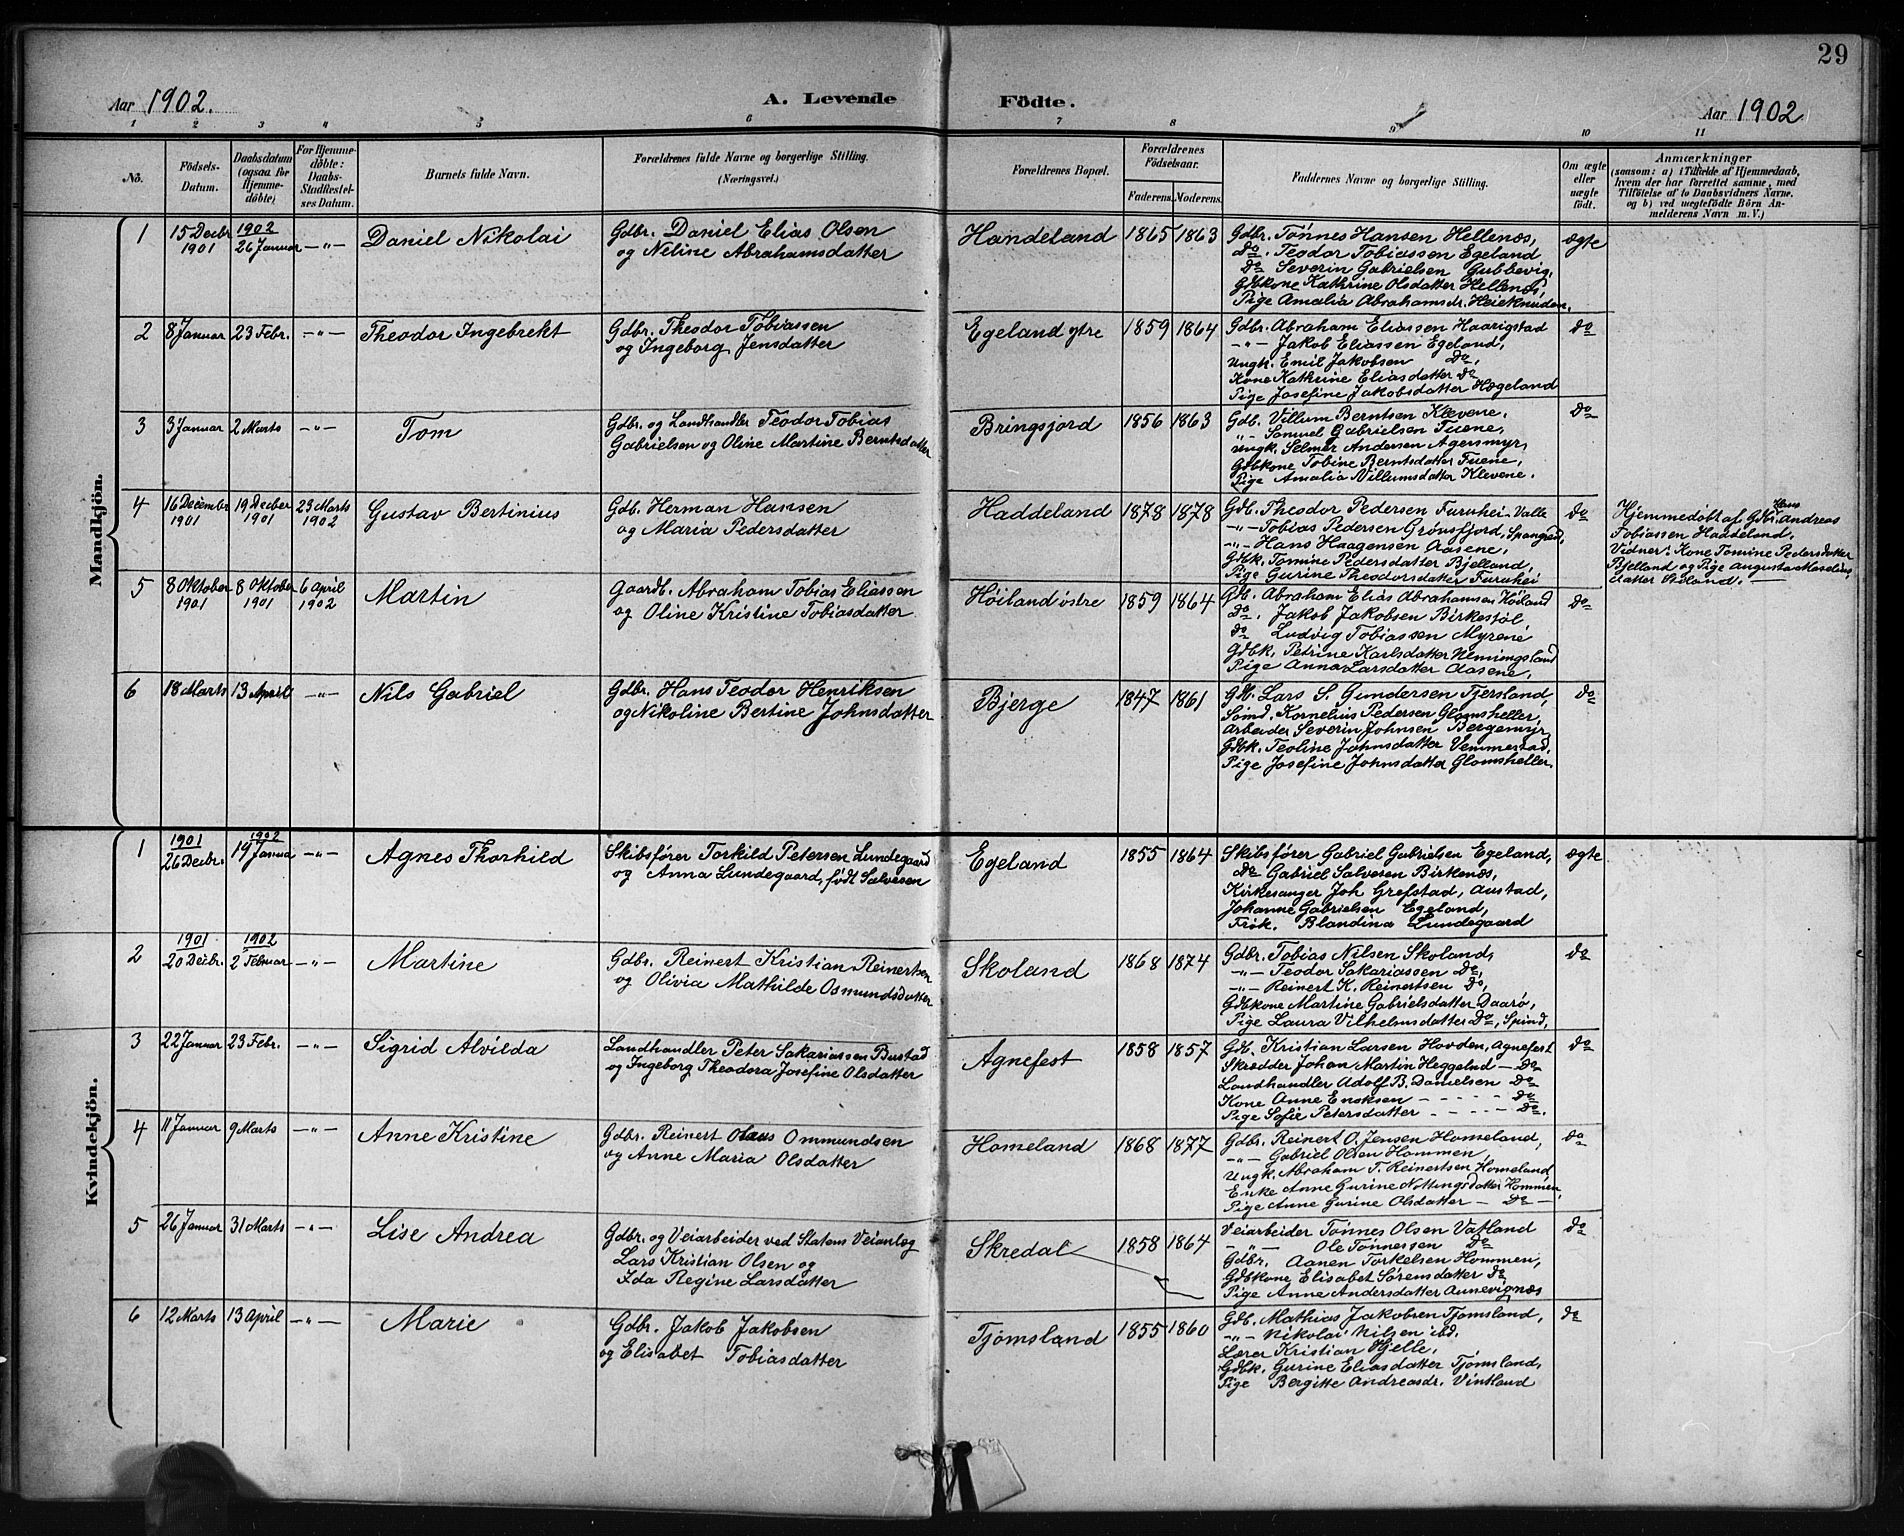 29
Aar 1902.
A. Levende Födte.
Aar 1902
1 2 3 4 5 6 7 8 9 10 11
No.
Födsels-Datum.
Daabsdatum (ogsaa for Hjemme-döbte)
For Hjemme-döbte: Daabs-Stadfæstel-ses Datum.
Barnets fulde Navn.
Forældrenes fulde Navne og borgerlige Stilling.
(Næringsvei.)
Forældrenes Bopæl.
Forældrenes Födselsaar.
Faderens. Moderens.
Faddernes Navne og borgerlige Stilling.
Om ægte eller uægte födt.
Anmærkninger
(saasom: a) i Tilfælde af Hjemmedaab, hvem der har forrettet samme, med Tilföielse af to Daabsvidners Navne. og b) ved uægtefödte Börn An-melderens Navn m. V.)
Mandkjön.
1 15 Decbr 1901 1902 26 Januar —"— Daniel Nikolai
Gdbr. Daniel Elias Olsen
og Neline Abrahamsdatter
Handeland 1865 1863
Gdbr. Tønnes Hansen Hellenæs,
do. Teodor Tobiassen Egeland
do Severin Gabrielsen Gubbevig,
Gdbkone Kathrine Olsdatter Hellenæs,
Pige Amalia Abrahamsdr. Heieknuden.
ægte
2 8 Januar 23 Febr. —"— Theodor Ingebrekt
Gdbr. Theodor Tobiassen
og Ingeborg Jensdatter
Egeland ytre 1859 1864
Gdbr. Abraham Eliassen Haarigstad
—"— Jakob Eliassen Egeland,
Ungk. Emil Jakobsen do,
Kone Kathrine Eliasdatter do
Pige Josefine Jakobsdatter Hægeland
do
3 3 Januar 2 Marts —"— Tom
Gdbr. og Landhandler Teodor Tobias
Gabrielsen og Oline Martine Berntsdatter
Bringsjord 1856 1863
Gdb. Villum Berntsen Klevene,
"- Samuel Gabrielsen Tuene,
Ungk. Selmer Andersen Agersmyr,
Gdbkone Tobine Berntsdatter Tuene,
Pige Amalia Villumsdatter Klevene.
do
4 16 December 1901 19 Decber 1901 23 Marts 1902 Gustav Bertinius
Gdb. Herman Hansen
og Maria Pedersdatter
Haddeland 1878 1878
Gdb. Theodor Pedersen Furuhei - Valle
—"— Tobias Pedersen Grønsfjord, Spangreid,
—"— Hans Haagensen Aasene,
Gdbk. Tomine Pedersdatter Bjelland,
Pige Gurine Theodorsdatter Furuhei
do
Hjemmedøbt af Gdbr. Hans Andreas
Tobiassen Haddeland.
Vidner: Kone Tomine Pedersdatter
Bjelland og Pige Augusta
datter
5 8 Oktober 1901 8 Oktober 1901 6 April 1902 Martin
Gaardb. Abraham Tobias Eliassen
og Oline Kristine Tobiasdatter
Høiland østre 1859 1864
Gdb. Abraham Elias Abrahamsen Høiland
do. Jakob Jakobsen Birkestøl
do Ludvig Tobiassen Myrene
Gdbk. Petrine Karlsdatter Hemingsland
Pige Anna Larsdatter Aasene,
do
6 18 Marts 13 April —"— Nils Gabriel
Gdbr. Hans Teodor Henriksen
og Nikoline Bertine Johnsdatter
Bjerge 1847 1861
Gdb. Lars S. Gundersen Tjersland,
Sømd. Kornelius Pedersen Glomsheller,
Arbeider Severin Johnsen Bergemyr,
Gdbk. Teoline Johnsdatter Vemmestad,
Pige Josefine Johnsdatter Glomsheller.
do
Kvindekjön.
1 1901 26 Decbr. 1902 19 Janua —"— Agnes Thorhild
Skibsfører Torkild Petersen Lundegaard
og Anna Lundegaard, født Salvesen
Egeland 1855 1864
Skibsfører Gabriel Gabrielsen Egeland,
do Gabriel Salvesen Birkenæs,
Kirkesanger Joh Grefstad, Austad,
Johanne Gabrielsen Egeland,
Frøk. Blandina Lundegaard
ægte
2 1901 20 Decbr. 1902 2 Februar —"— Martine
Gdbr. Reinert Kristian Reinertsen
og Olivia Mathilde Osmundsdatter
Skoland 1868 1874
Gdbr. Tobias Nilsen Skoland,
—"— Teodor Sakariassen do,
—"— Reinert K. Reinertsen do,
Gdbkone Martine Gabrielsdatter Daarø,
Pige Laura Vilhelmsdatter do, Spind,
do
3 22 Januar 23 Febr. —"— Sigrid Alvilda
Landhandler Peter Sakariassen Bustad
og Ingeborg Theodora Josefine Olsdatter
Agnefest 1858 1857
Gdb. Kristian Larsen Hovden, Agnefest
Skrædder Johan Martin Heggelnd — do
Landhandler Adolf B. Danielsen do
Kone Anne Eriksen - - - - - do
Pige Sofie Petersdatter - - - - do.
do
4 11 Januar 9 Marts —"— Anne Kristine
Gdbr. Reinert Olaus Ommundsen
og Anne Maria Olsdatter
Homeland 1868 1877
Gdbr. Reinert O. Jensen Homeland,
—"— Gabriel Olsen Hommen,
Ungk. Abraham T. Reinertsen Homeland
Enke Anne Gurine Nottingsdatter Hommen,
Pige Anne Gurine Olsdatter — do —
do
5 26 Januar 31 Marts —"— Lise Andrea
Gdbr. og Veiarbeider ved Statens Veianlæg
Lars Kristian Olsen og
Ida Regine Larsdatter
Skredal 1858 1864
Veiarbeider Tønnes Olsen Vatland
—"— Ole Tønnessen do
Gdbr. Aanen Torkelsen Hommen,
Gdbkone Elisabet Sørensdatter do
Pige Anne Andersdatter Annevignæs
do
6 12 Marts 13 April —"— Marie
Gdbr. Jakob Jakobsen
og Elisabet Tobiasdatter
Tjømsland 1855 1860
Gdb. Mathias Jakobsen Tjomsland,
—"— Nikolai Nilsen ibd.
Lærer Kristian Hjelle,
Gdbk. Gurine Eliasdatter Tjømsland,
Pige Bergitte Andreasdr. Vintland
do